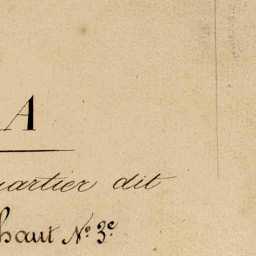 A
uartier dit
haut N.º 3.e